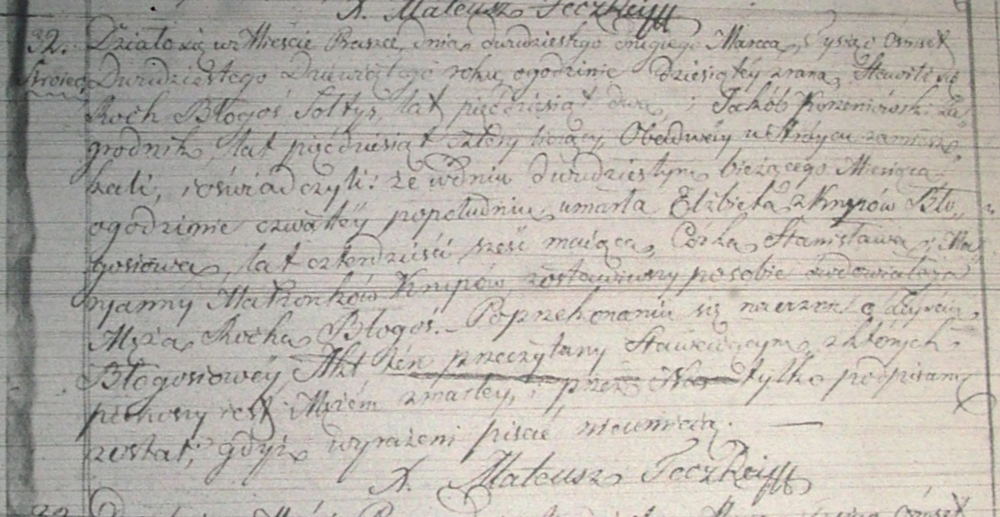 X. Mateusz Teczkeifft
32. Działo się w Mieście Praszce, dnia dwudziestego drugiego Marca, Tysiąc Ośmset
Stroiec Dwudziestego Dziewiątego roku, ogodzinie dziesiątey zrana, Stawili się
Roch Błogoś Sołtys, lat pięćdziesiąt dwa, i Jakób Korzeniowski Za„
grodnik, lat pięćdziesiąt cztery liczący, Obadway w Stroycu zamiesz„
kali, i oświadczyli: że wdniu dwudziestym bieżącego Miesiąca
ogodzinie czwartey popołudniu, umarła Elżbieta z Knypów Bło„
gosiowa, lat czterdzieści sześć maiąca, Córka Stanisława i Ma„
ryanny Małżonków Knypów zostawiwszy posobie owdowiałego
Męża Rocha Błogoś. – Poprzekonaniu się naocznie o zeyściu
Błogosiowey, Akt ten przeczytany Stawaiącym, z których
pierwszy iest Mężem zmarłey, i przez Nas tylko podpisany
został, gdyż wyrażeni pisać nieumieią.
X. Mateusz Teczkeifft